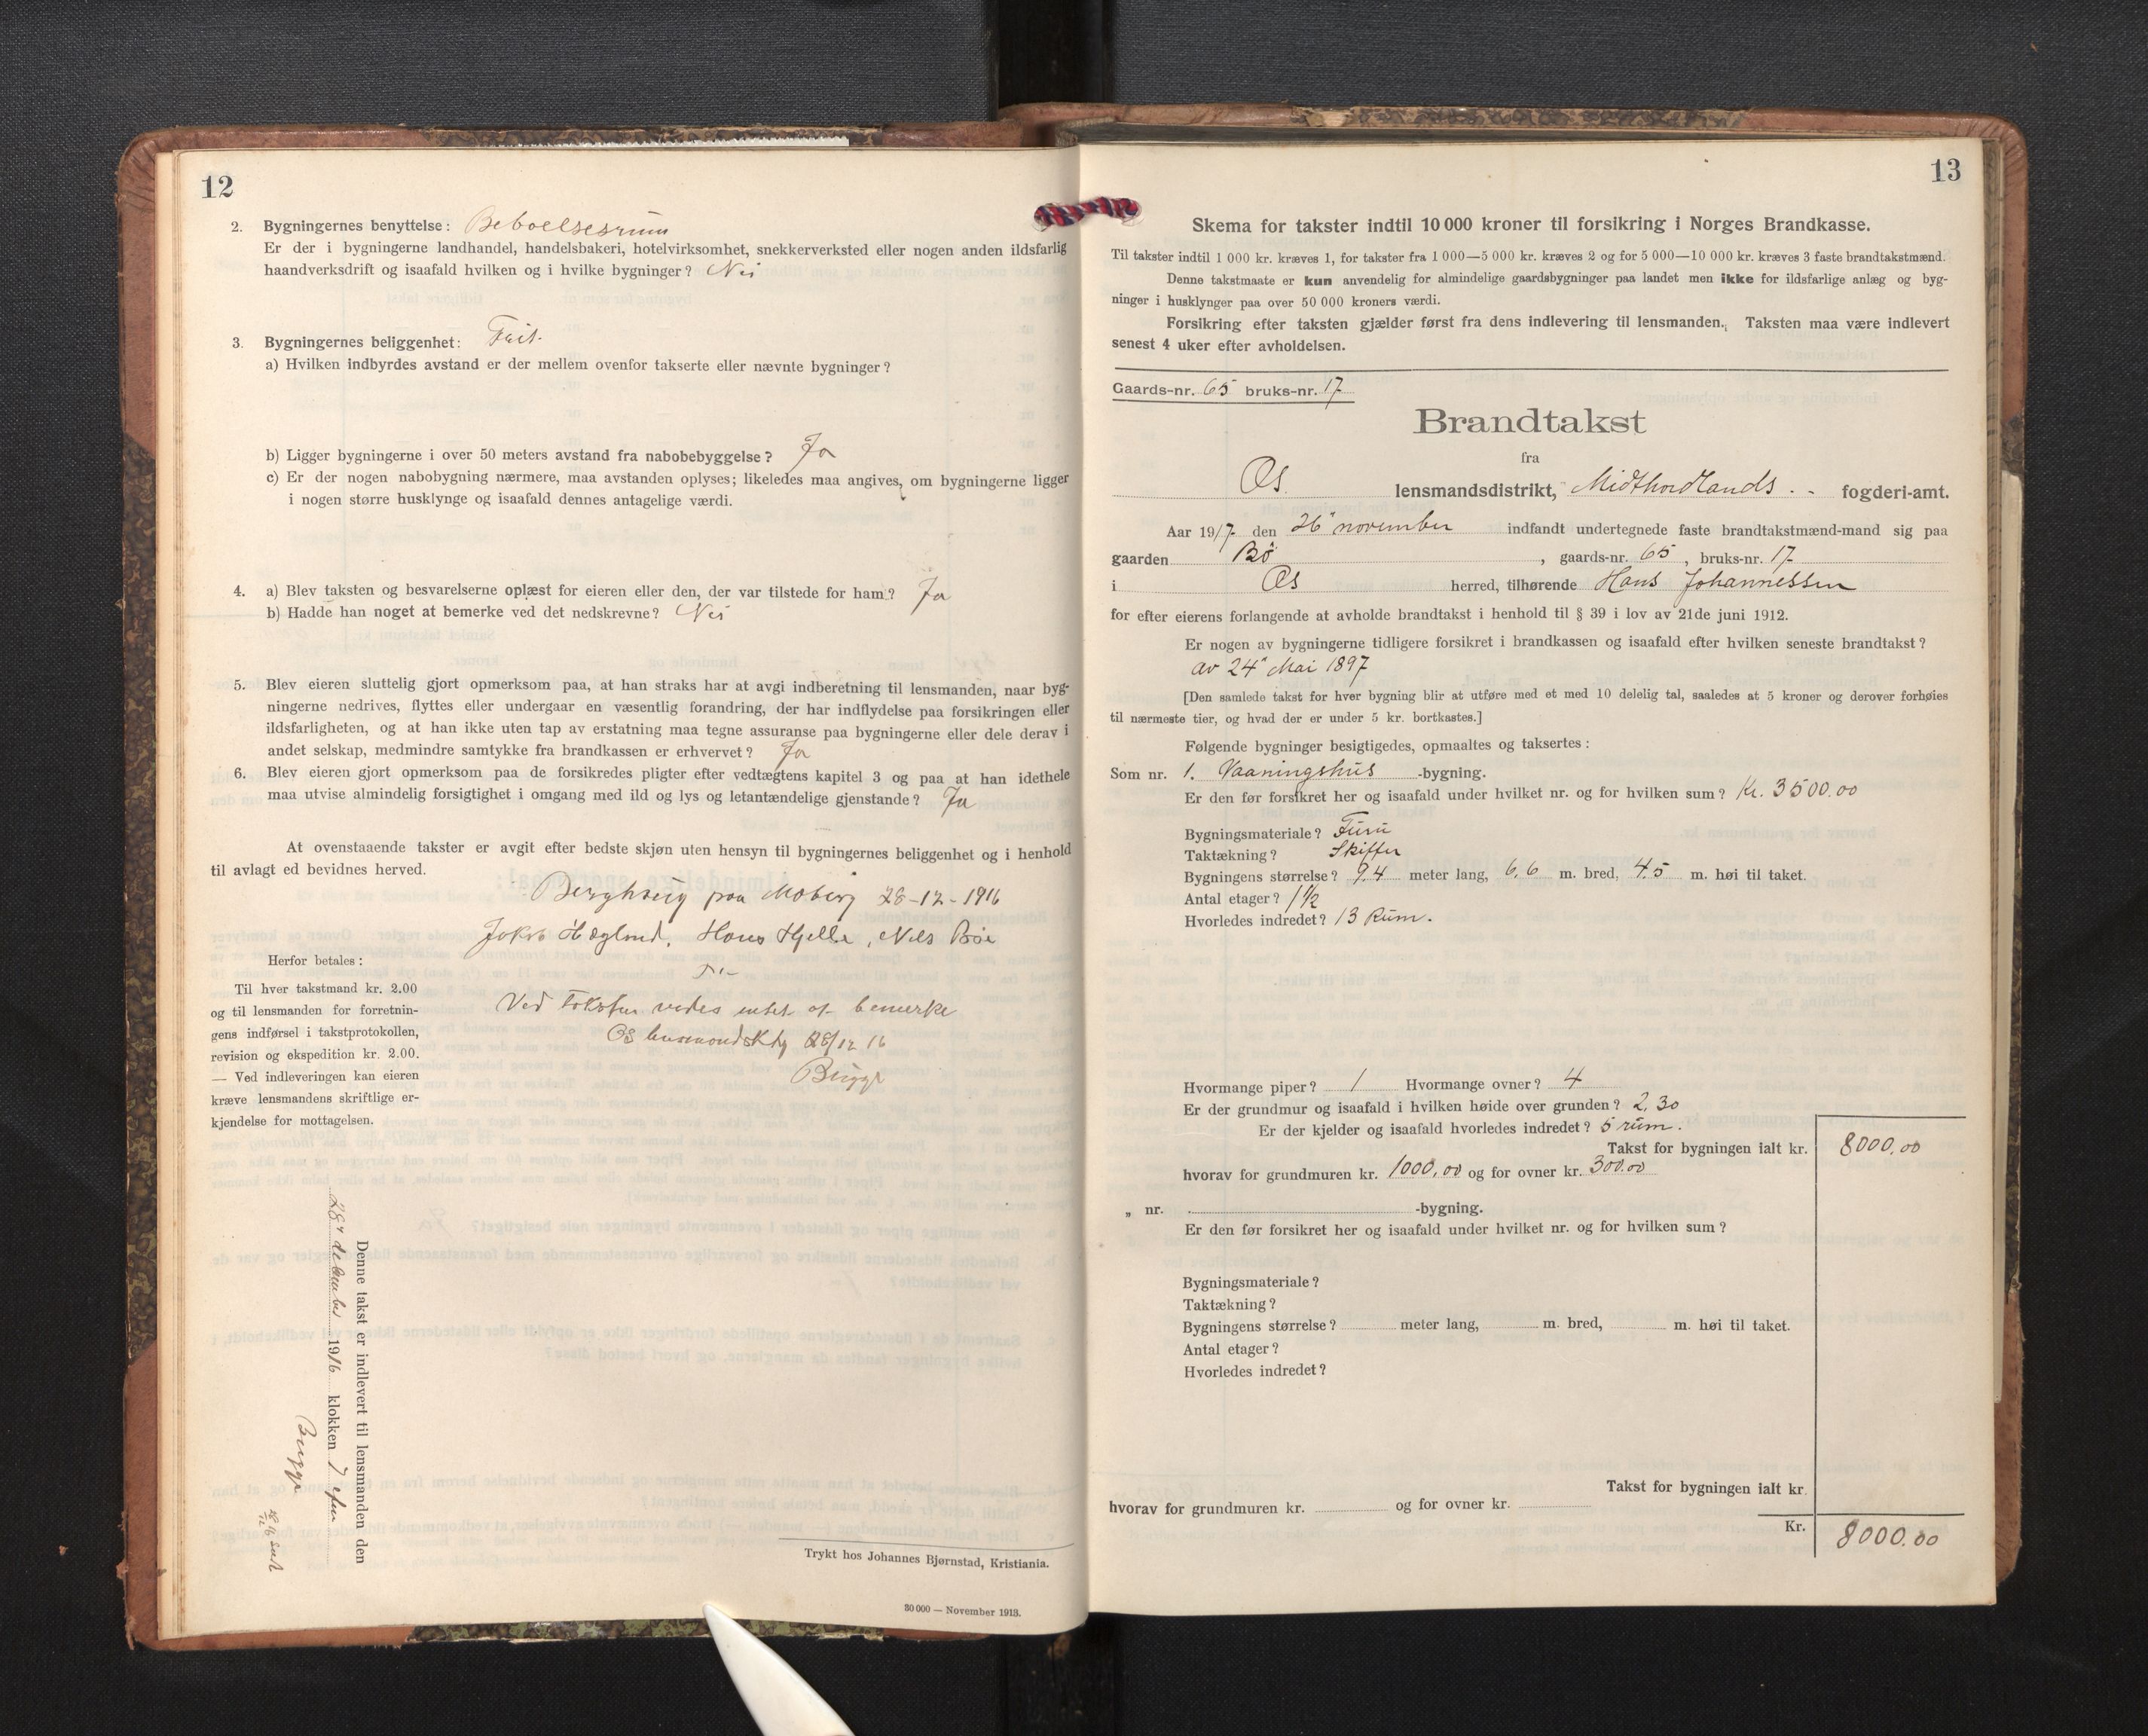 12
2. Bygningernes benyttelse: Beboelsesrum
Er der i bygningerne landhandel, handelsbakeri, hotelvirksomhet, snekkerverksted eller nogen anden ildsfarlig
haandverksdrift og isaafald hvilken og i hvilke bygninger? Nei
3. Bygningernes beliggenhet: Frit.
a) Hvilken indbyrdes avstand er der mellem ovenfor takserte eller nævnte bygninger?
b) Ligger bygningerne i over 50 meters avstand fra nabobebyggelse? Ja
c) Er der nogen nabobygning nærmere, maa avstanden oplyses; likeledes maa angives, om bygningerne ligger
i nogen større husklynge og isaafald dennes antagelige værdi.
4. a) Blev taksten og besvarelserne oplæst for eieren eller den, der var tilstede for ham? Ja
b) Hadde han noget at bemerke ved det nedskrevne? Nei
5. Blev eieren sluttelig gjort opmerksom paa, at han straks har at avgi indberetning til lensmanden, naar byg-
ningerne nedrives, flyttes eller undergaar en væsentlig forandring, der har indflydelse paa forsikringen eller
ildsfarligheten, og at han ikke uten tap av erstatning maa tegne assuranse paa bygningerne eller dele derav i
andet selskap, medmindre samtykke fra brandkassen er erhvervet? Ja
6. Blev eieren gjort opmerksom paa de forsikredes pligter efter vedtægtens kapitel 3 og paa at han idethele
maa utvise almindelig forsigtighet i omgang med ild og lys og letantændelige gjenstande? Ja
At ovenstaaende takster er avgit efter bedste skjøn uten hensyn til bygningernes beliggenhet og i henhold
til avlagt ed bevidnes herved.
paa Moberg 28-12-1916
Hans Hjelle, Nels Bøe
Herfor betales:
Til hver takstmand kr. 2.00
og til lensmanden for forretnin-
gens indførsel i takstprotokollen,
revision og ekspedition kr. 2.00.
— Ved indleveringen kan eieren
kræve lensmandens skriftlige er-
kjendelse for mottagelsen.
Ved taksten vides intet at bemerke
Os 28/12 16
Brügge
Denne takst er indlevert til lensmanden den
28" december 1916 klokken 7 efm
Brügge
Trykt hos Johannes Bjørnstad, Kristiania.
30 000 — November 1913.
13
Skema for takster indtil 10 000 kroner til forsikring i Norges Brandkasse.
Til takster indtil 1 000 kr. kræves 1, for takster fra 1 000—5 000 kr. kræves 2 og for 5 000—10 000 kr. kræves 3 faste brandtakstmænd.
Denne takstmaate er kun anvendelig for almindelige gaardsbygninger paa landet men ikke for ildsfarlige anlæg og byg-
ninger i husklynger paa over 50 000 kroners værdi.
Forsikring efter taksten gjælder først fra dens indlevering til lensmanden. Taksten maa være indlevert
senest 4 uker efter avholdelsen.
Gaards-nr. 65 bruks-nr. 17
Brandtakst
fra
Os lensmandsdistrikt, Midthordlands fogderi-amt.
Aar 1917 den 26" november indfandt undertegnede faste brandtakstmænd-mand sig paa
gaarden Bö, gaards-nr. 65, bruks-nr. 17
i Os herred, tilhørende Hans Johannessen
for efter eierens forlangende at avholde brandtakst i henhold til § 39 i lov av 21de juni 1912.
Er nogen av bygningerne tidligere forsikret i brandkassen og isaafald efter hvilken seneste brandtakst?
av 24" Mai 1897
[Den samlede takst for hver bygning blir at utføre med et med 10 delelig tal, saaledes at 5 kroner og derover forhøies
til nærmeste tier, og hvad der er under 5 kr. bortkastes.]
Følgende bygninger besigtigedes, opmaaltes og taksertes:
Som nr. 1. Vaaningshus -bygning.
Er den før forsikret her og isaafald under hvilket nr. og for hvilken sum? Kr. 3500.00
Bygningsmateriale? Furu
Taktækning? Skiffer
Bygningens størrelse? 9.4 meter lang, 6,6 m. bred, 4.5 m. høi til taket.
Antal etager? 1 1/2
Hvorledes indredet? 13 Rum.
Hvormange piper? 1 Hvormange ovner? 4
Er der grundmur og isaafald i hvilken høide over grunden? 2,30
Er der kjelder og isaafald hvorledes indredet? 5 rum.
Takst for bygningen ialt kr. 8000,00
hvorav for grundmuren kr. 1000,00 og for ovner kr. 300.00
„ nr. -bygning.
Er den før forsikret her og isaafald under hvilket nr. og for hvilken sum?
Bygningsmateriale?
Taktækning?
Bygningens størrelse? meter lang, m. bred, m. høi til taket.
Antal etager?
Hvorledes indredet?
Takst for bygningen ialt kr.
hvorav for grundmuren kr. og for ovner kr.
Kr. 8000.00